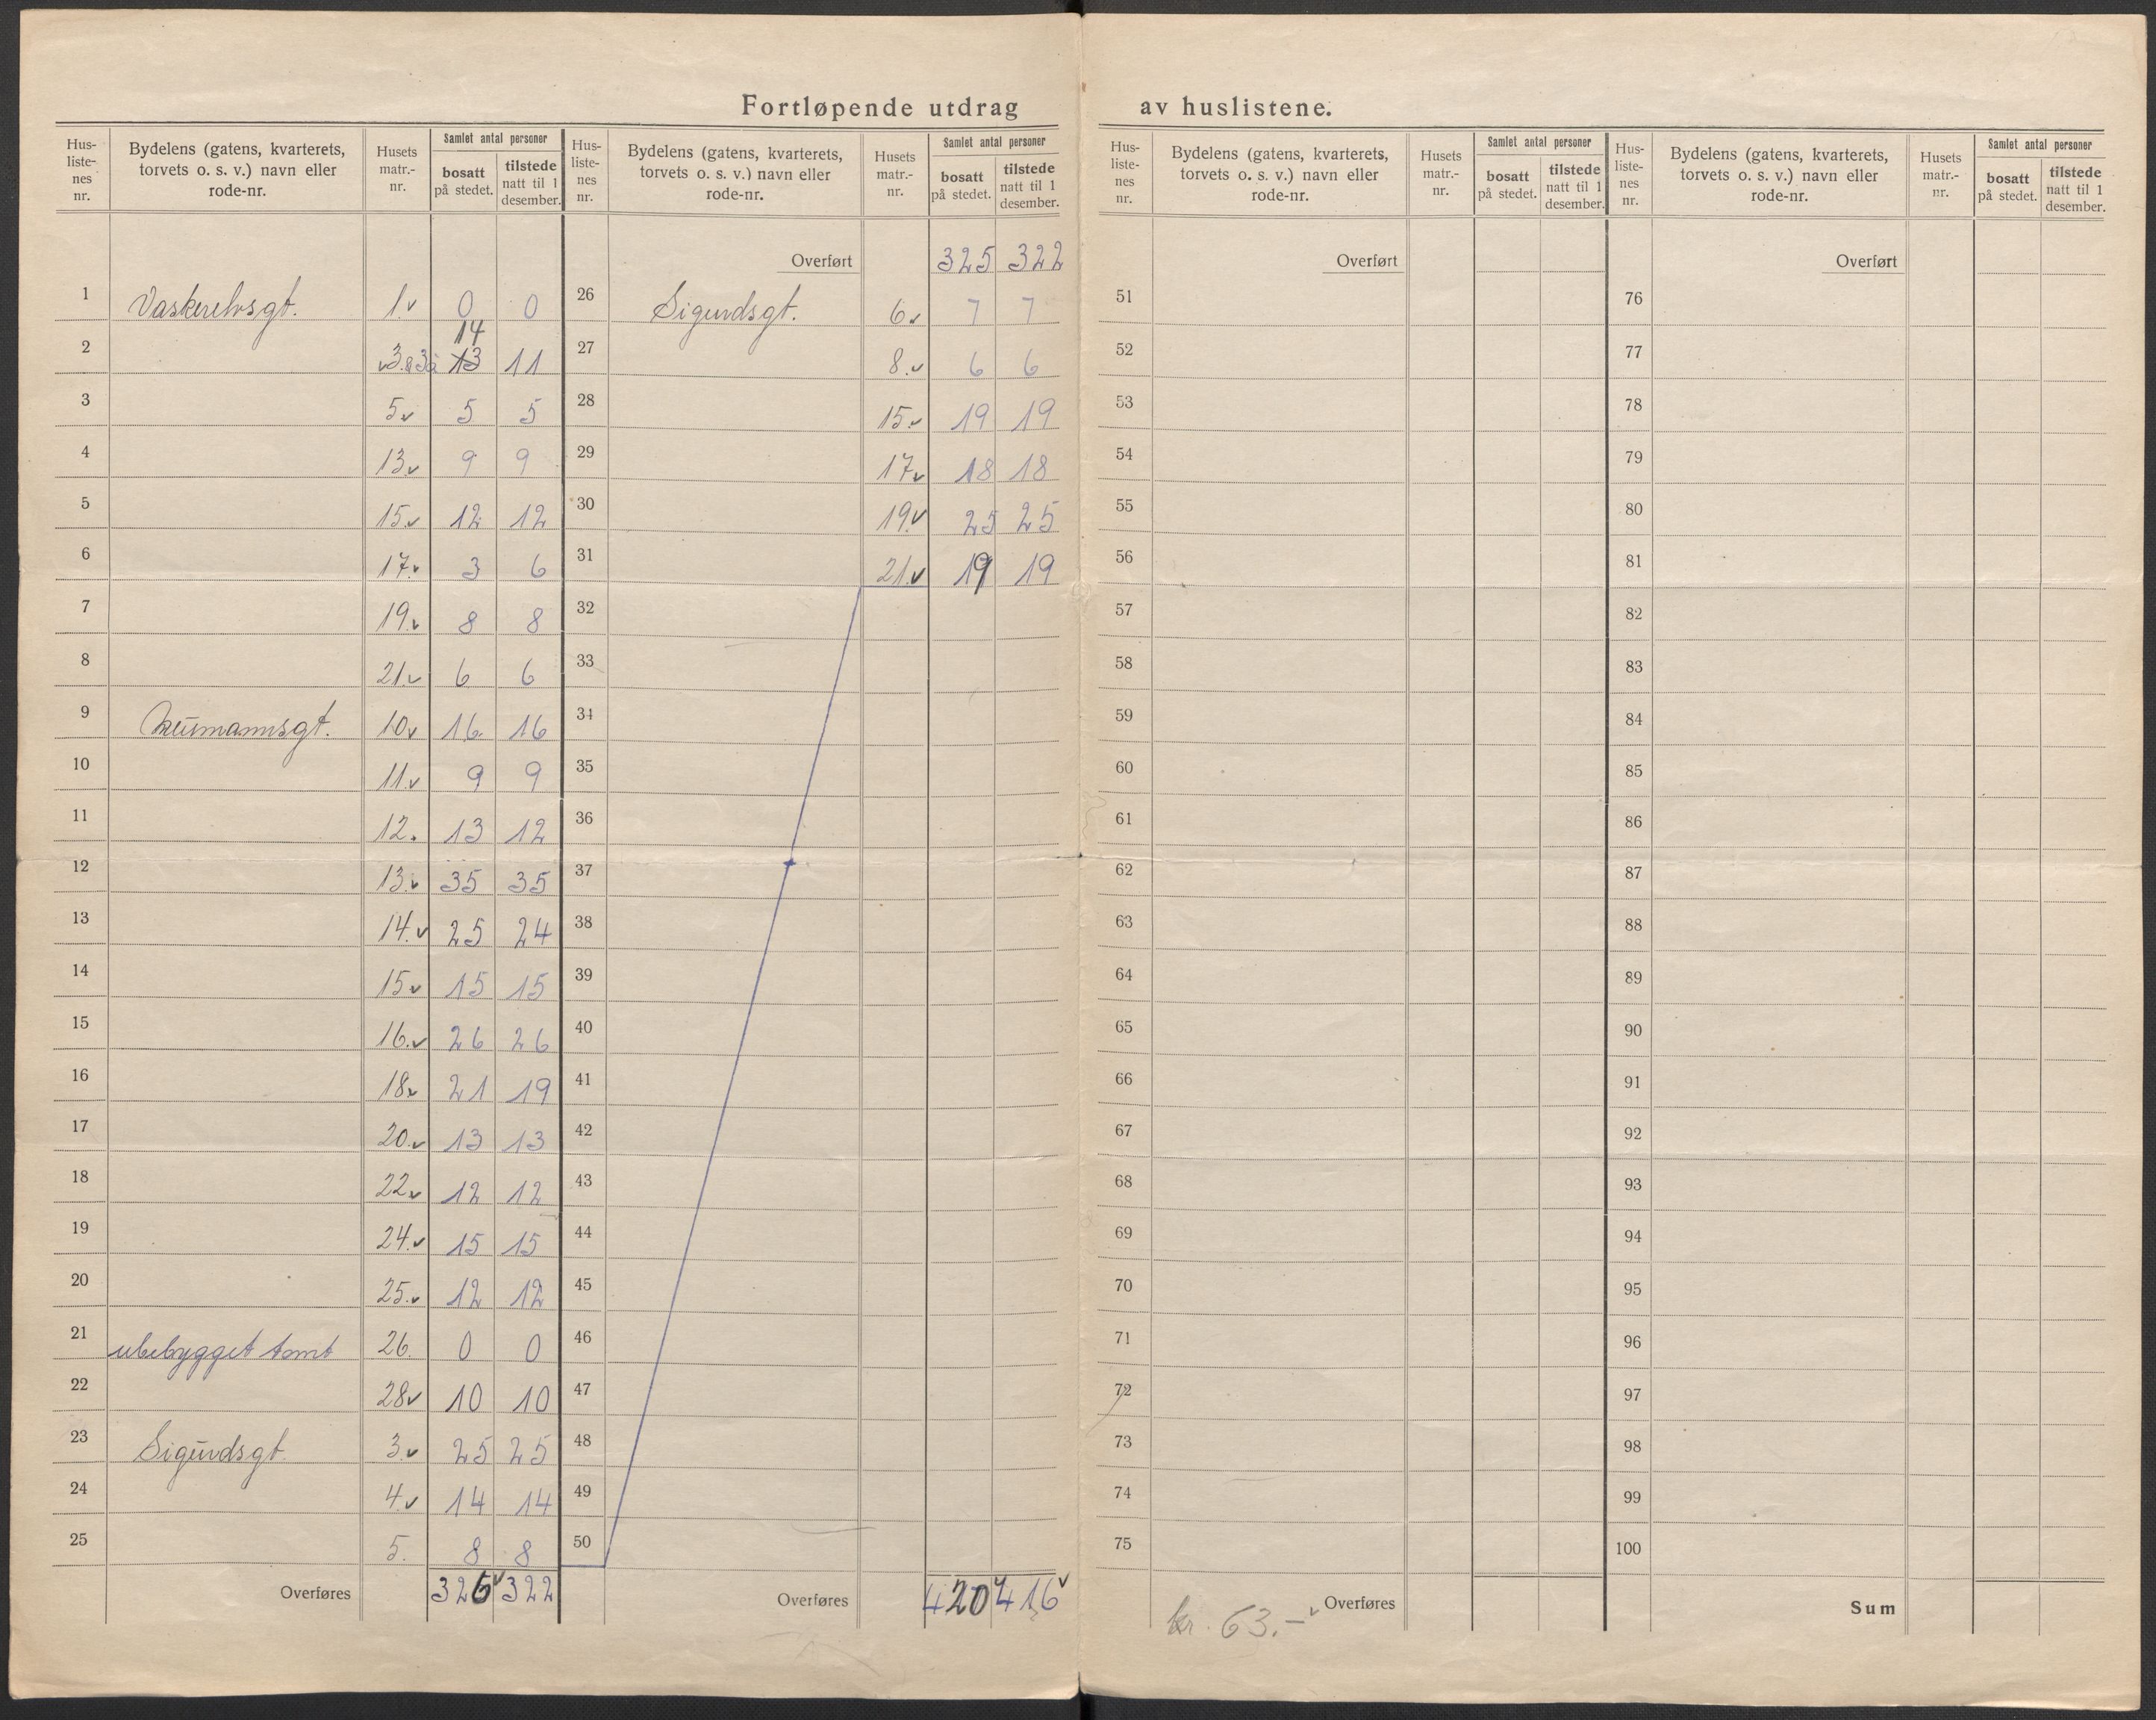 Fortløpende utdrag av huslistene.
Hus-listenes nr. | Bydelens (gatens, kvarterets, torvets o. s. v.) navn eller rode-nr. | Husets matr.-nr. | Samlet antal personer | bosatt på stedet. | tilstede natt til 1 desember.
1 Vaskerelvsgt. 1.v 0 0
2 v3.&3a 13 14 11
3 5.v 5 5
4 13.v 9 9
5 15.v 12 12
6 17.v 3 6
7 19.v 8 8
8 21.v 6 6
9 Neumannsgt. 10.v 16 16
10 11.v 9 9
11 12. 13 12
12 13.v 35 35
13 14.v 25 24
14 15.v 15 15
15 16.v 26 26
16 18.v 21 19
17 20.v 13 13
18 22.v 12 12
19 24.v 15 15
20 25.v 12 12
21 ubebygget tomt 26. 0 0
22 28v 10 10
23 Sigurdsgt. 3.v 25 25
24 4.v 14 14
25 5. 8 8
Overføres 326v 322
Hus-listenes nr. | Bydelens (gatens, kvarterets, torvets o. s. v.) navn eller rode-nr. | Husets matr.-nr. | Samlet antal personer | bosatt på stedet. | tilstede natt til 1 desember.
Overført 325 322
26 Sigurdsgt. 6.v 7 7
27 8.v 6 6
28 15.v 19 19
29 17.v 18 18
30 19.v 25 25
31 21.v 19 19
32
33
34
35
36
37
38
39
40
41
42
43
44
45
46
47
48
49
50
Overføres 420v 416v
Hus-listenes nr. | Bydelens (gatens, kvarterets, torvets o. s. v.) navn eller rode-nr. | Husets matr.-nr. | Samlet antal personer | bosatt på stedet. | tilstede natt til 1 desember.
Overført
51
52
53
54
55
56
57
58
59
60
61
62
63
64
65
66
67
68
69
70
71
72
73
74
75
kr. 63.- v Overføres
Hus-listenes nr. | Bydelens (gatens, kvarterets, torvets o. s. v.) navn eller rode-nr. | Husets matr.-nr. | Samlet antal personer | bosatt på stedet. | tilstede natt til 1 desember.
Overført
76
77
78
79
80
81
82
83
84
85
86
87
88
89
90
91
92
93
94
95
96
97
98
99
100
Sum